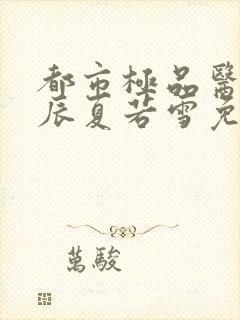 都市極品醫
辰夏若雪免
萬駿